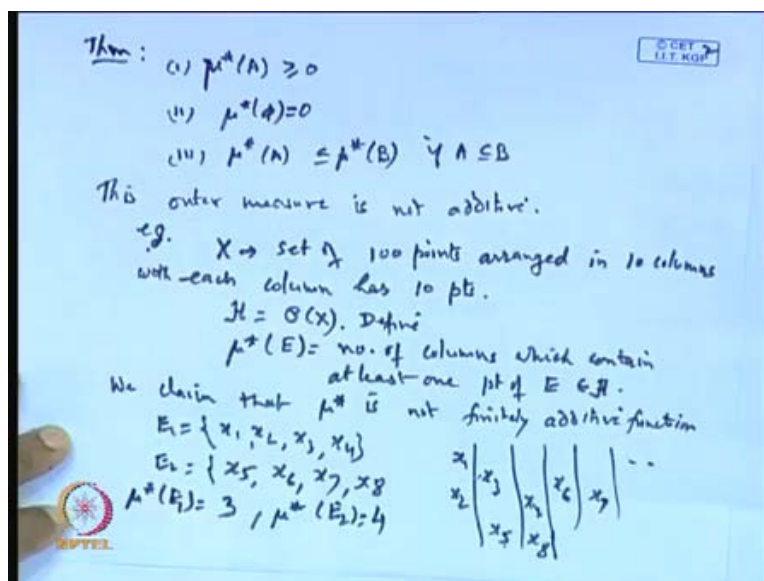 Thm : (i) μ*(A) ≥ 0
© CET
I.I.T. KGP
(ii) μ*(φ)=0
(iii) μ*(A) ≤ μ*(B) if A ⊆ B
This outer measure is not additive.
e.g. X → set of 100 points arranged in 10 columns
with each column has 10 pts.
H = P(X). Define
μ*(E) = no. of columns which contain
at least one pt of E ∈ H.
We claim that μ* is not finitely additive function
E₁ = {x₁, x₂, x₃, x₄}
E₂ = {x₅, x₆, x₇, x₈
μ*(E₁)= 3 , μ*(E₂)=4
x₁ x₃ x₆ x₇ ..
x₂
x₅ x₈
NPTEL